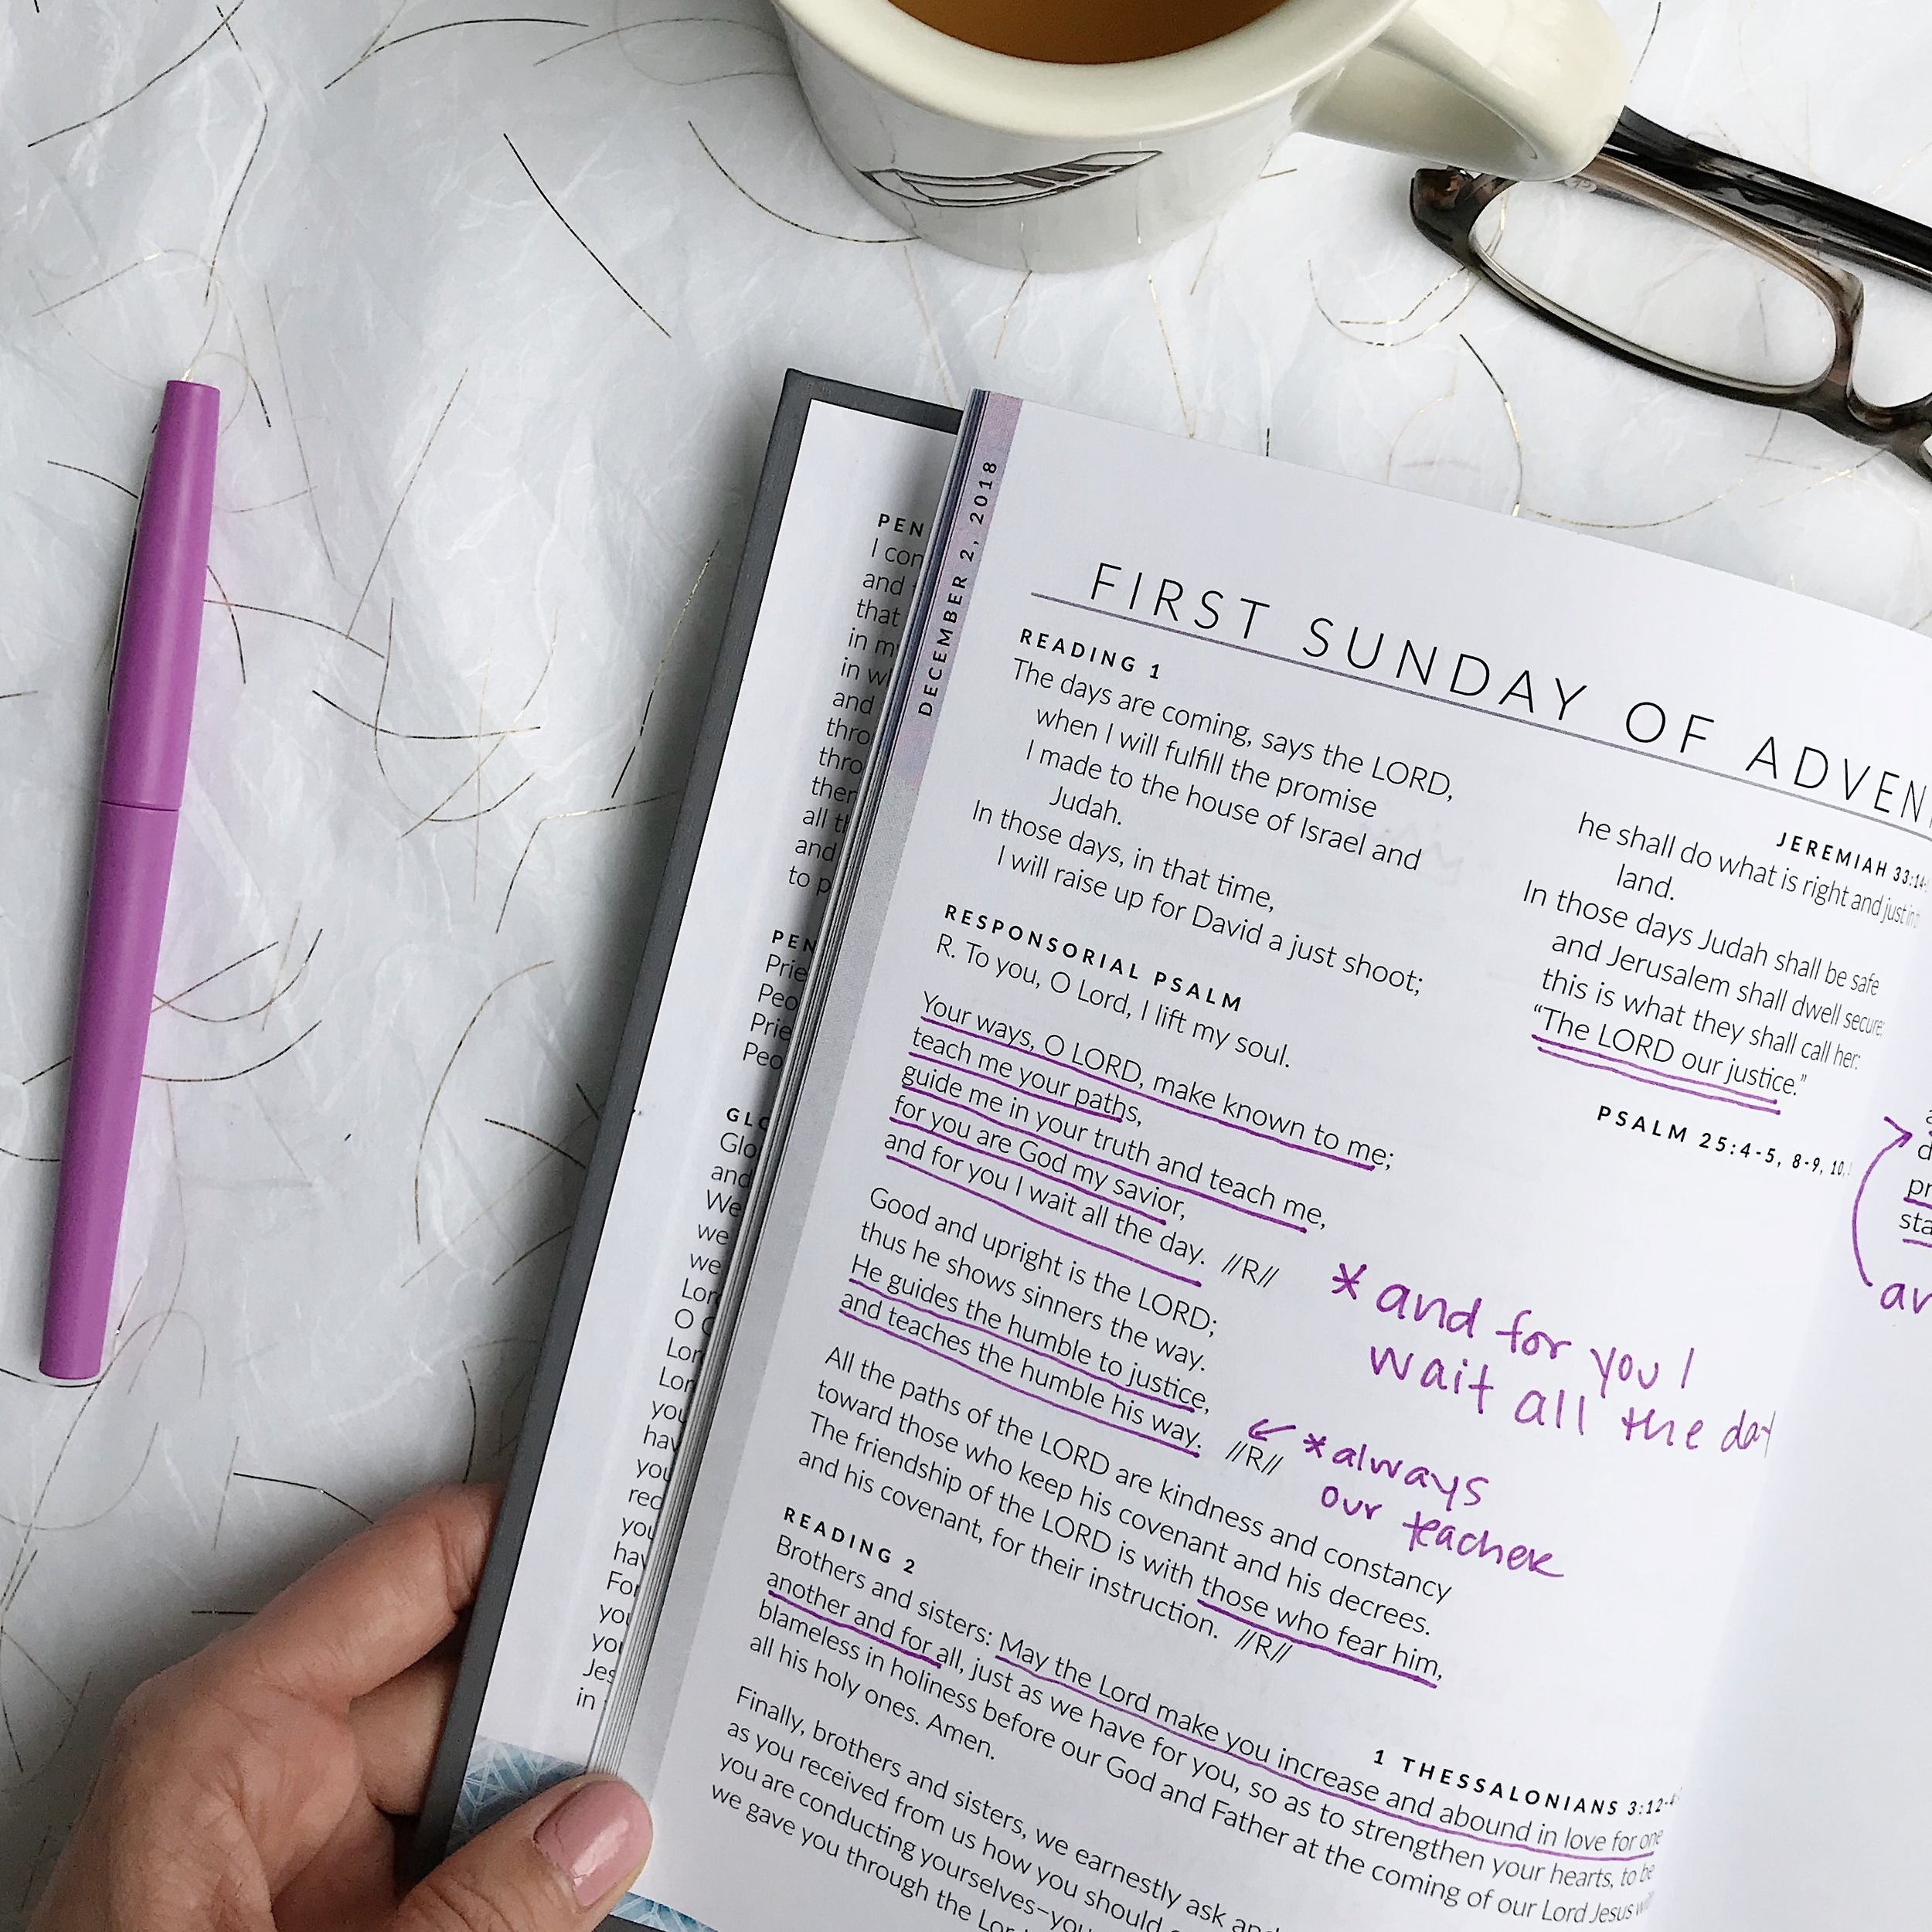 DECEMBER 2, 2018
FIRST SUNDAY OF
READING 1
JEREMIAH
The days are coming, says the LORD,
when I will fulfill the promise
I made to the house of Israel and
Judah.
In those days, in that time,
I will raise up for David a just shoot;
he shall do what is right and just
land.
In those days Judah shall be safe
and Jerusalem shall dwell
this is what they shall call her:
“The LORD our justice.”
RESPONSORIAL PSALM
PSALM 25:4-5, 8-9, 10,
R. To you, O Lord, I lift my soul.
Your ways, O LORD, make known to me;
teach me your paths,
guide me in your truth and teach me,
for you are God my savior,
and for you I wait all the day. //R//
Good and upright is the LORD;
thus he shows sinners the way.
He guides the humble to justice,
and teaches the humble his way. //R//
All the paths of the LORD are kindness and constancy
toward those who keep his covenant and his decrees.
The friendship of the LORD is with those who fear him,
and his covenant, for their instruction. //R//
* and for you I
wait all the day
* always
our teacher
READING 2
1 THESSALONIANS
Brothers and sisters: May the Lord make you increase and abound in love for one
another and for all, just as we have for you, so as to strengthen your hearts, to be
blameless in holiness before our God and Father at the coming of our Lord Jesus
all his holy ones. Amen.
Finally, brothers and sisters, we earnestly ask and
as you received from us how you should
you are conducting yourselves–you
we gave you through the
PEN
I
and
that
in
in
and
all
and
to
PEN
We
we
we
O
you
you
you
you
you
in